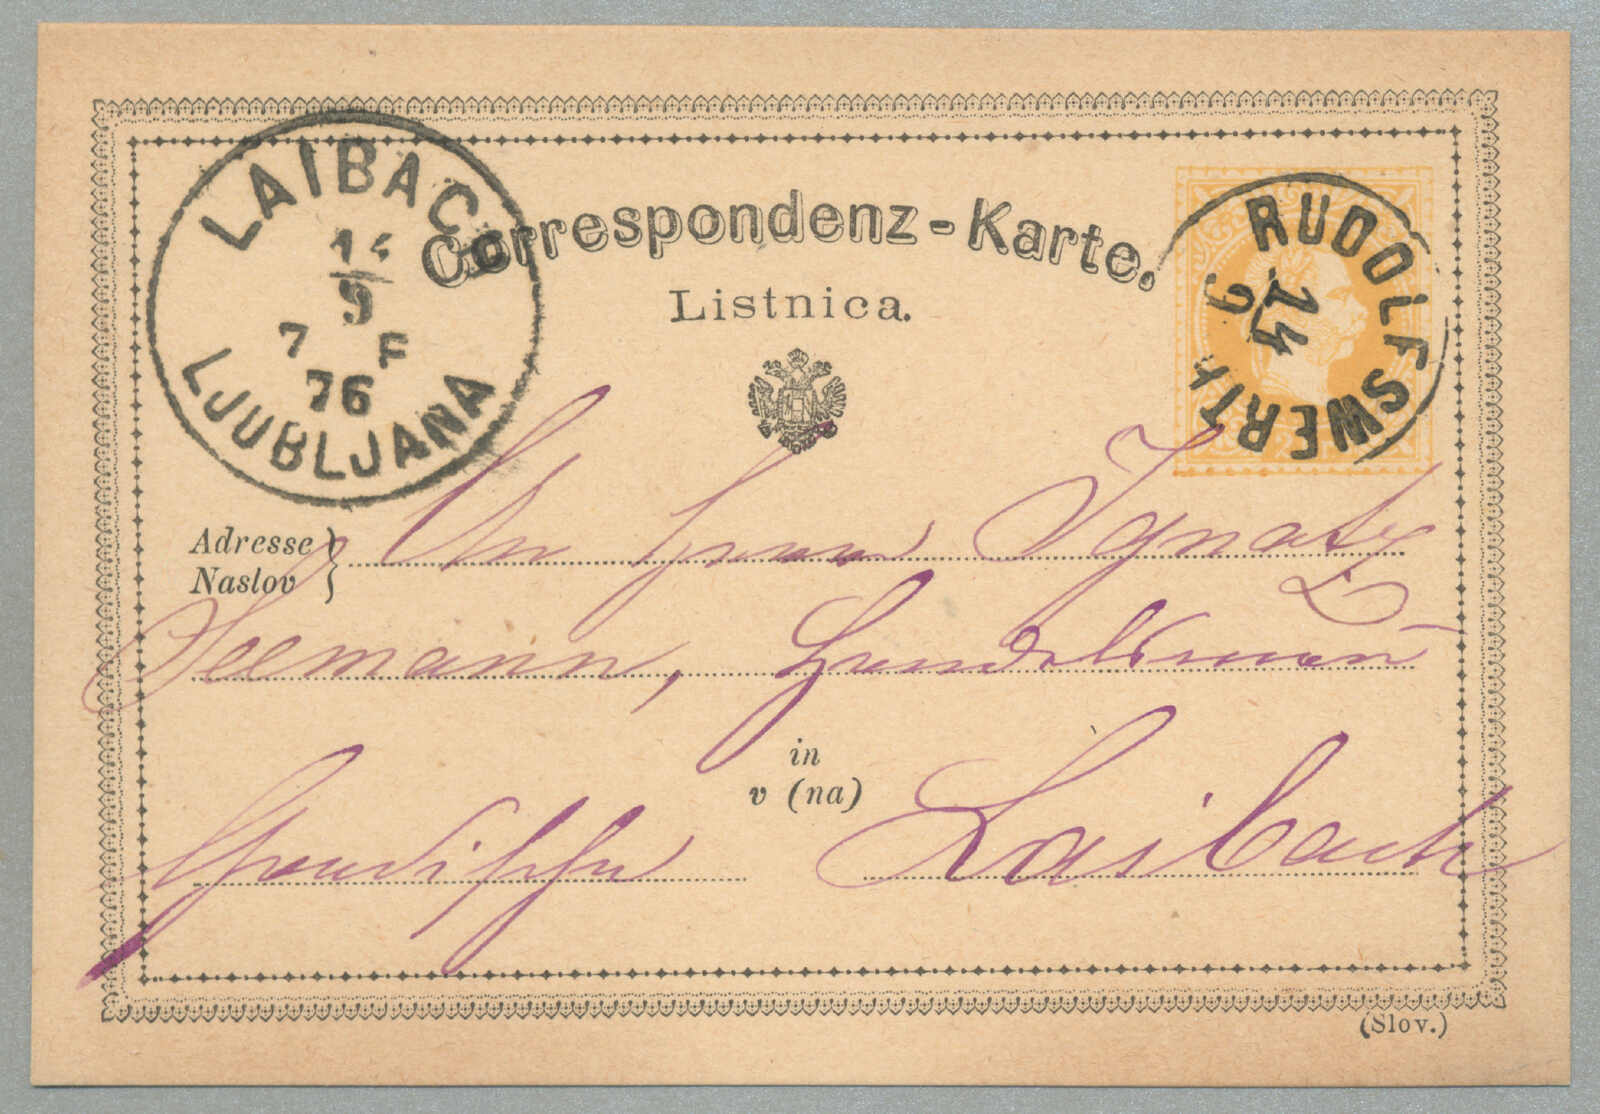 LAIBACH
14
9
7 F
76
LJUBLJANA
Correspondenz-Karte.
Listnica.
RUDOLFSWERTH
14
9
Adresse
Naslov
An Herrn Ignatz
Seemann, Handelsman
in
v (na)
Laibach
(Slov.)